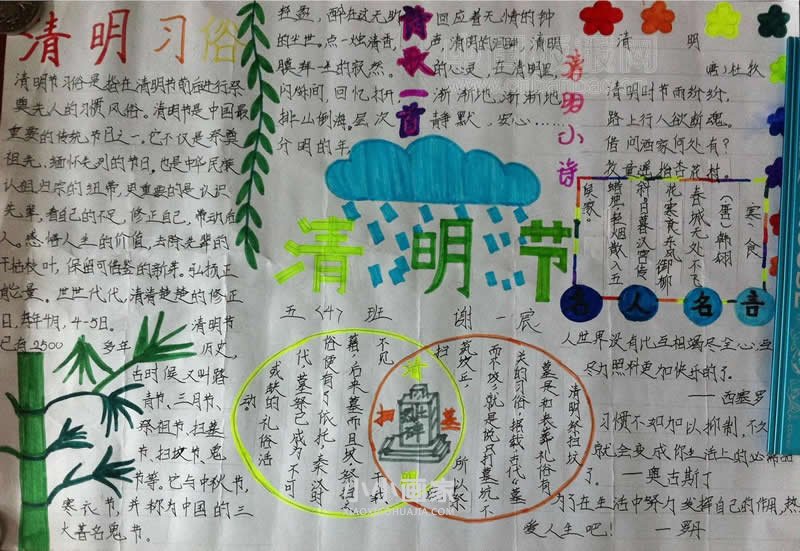 清明习俗
清明节习俗是指在清明节前后进行祭
奠先人的习惯风俗。清明节是中国最
重要的传统节日之一。它不仅是祭奠
祖先、缅怀先烈的节日。也是中华民族
认祖归宗的纽带,更重要的是认识
先辈,看自己的不足,修正自己,带动后
人。感悟人生的价值,去除先辈的
干枯枝叶,保留可借鉴的新芽。弘扬正
能量。世世代代,清清楚楚的修正
日,每年4月,4-5日。 清明节
已有2500 多年 历史,
古时候又叫踏
青节、三月节、
祭祖节、扫墓
节、扫坟节、鬼
节等。它与中秋节,
寒衣节,并称为中国的三
大著名鬼节。
诗歌一首
清明小诗
清 明
唐)杜牧
清明时节雨纷纷,
路上行人欲断魂。
借问酒家何处有?
牧童遥指杏花村
寒、食
(唐)韩翃
春城无处不飞
花寒食东风御柳
斜日暮汉宫传
蜡烛轻烟散入五
侯家。
名人名言
清明节
五〈4〉班 谢一宸
清明祭扫坟
墓是和丧葬礼俗有
关的习俗。据载古代"墓
而不坟"就是说只打墓坑不
筑坟丘, 所以祭
扫
不见
籍。后来墓而且坟祭扫之
俗便有了依托。秦汉时
代墓祭已成为不可
或缺的礼俗活
动。
清
扫
墓
人世界没有比互相竭尽全心、互
尽力照料更加快乐的了。
——西塞罗
习惯不如加以抑制,不久
就会变成你生活上的必需品
了。 ——奥古斯丁
为了在生活中努力发挥自己的作用,热
爱人生吧! —罗丹
小小画家
XIAOXIAOHUAJIA.COM